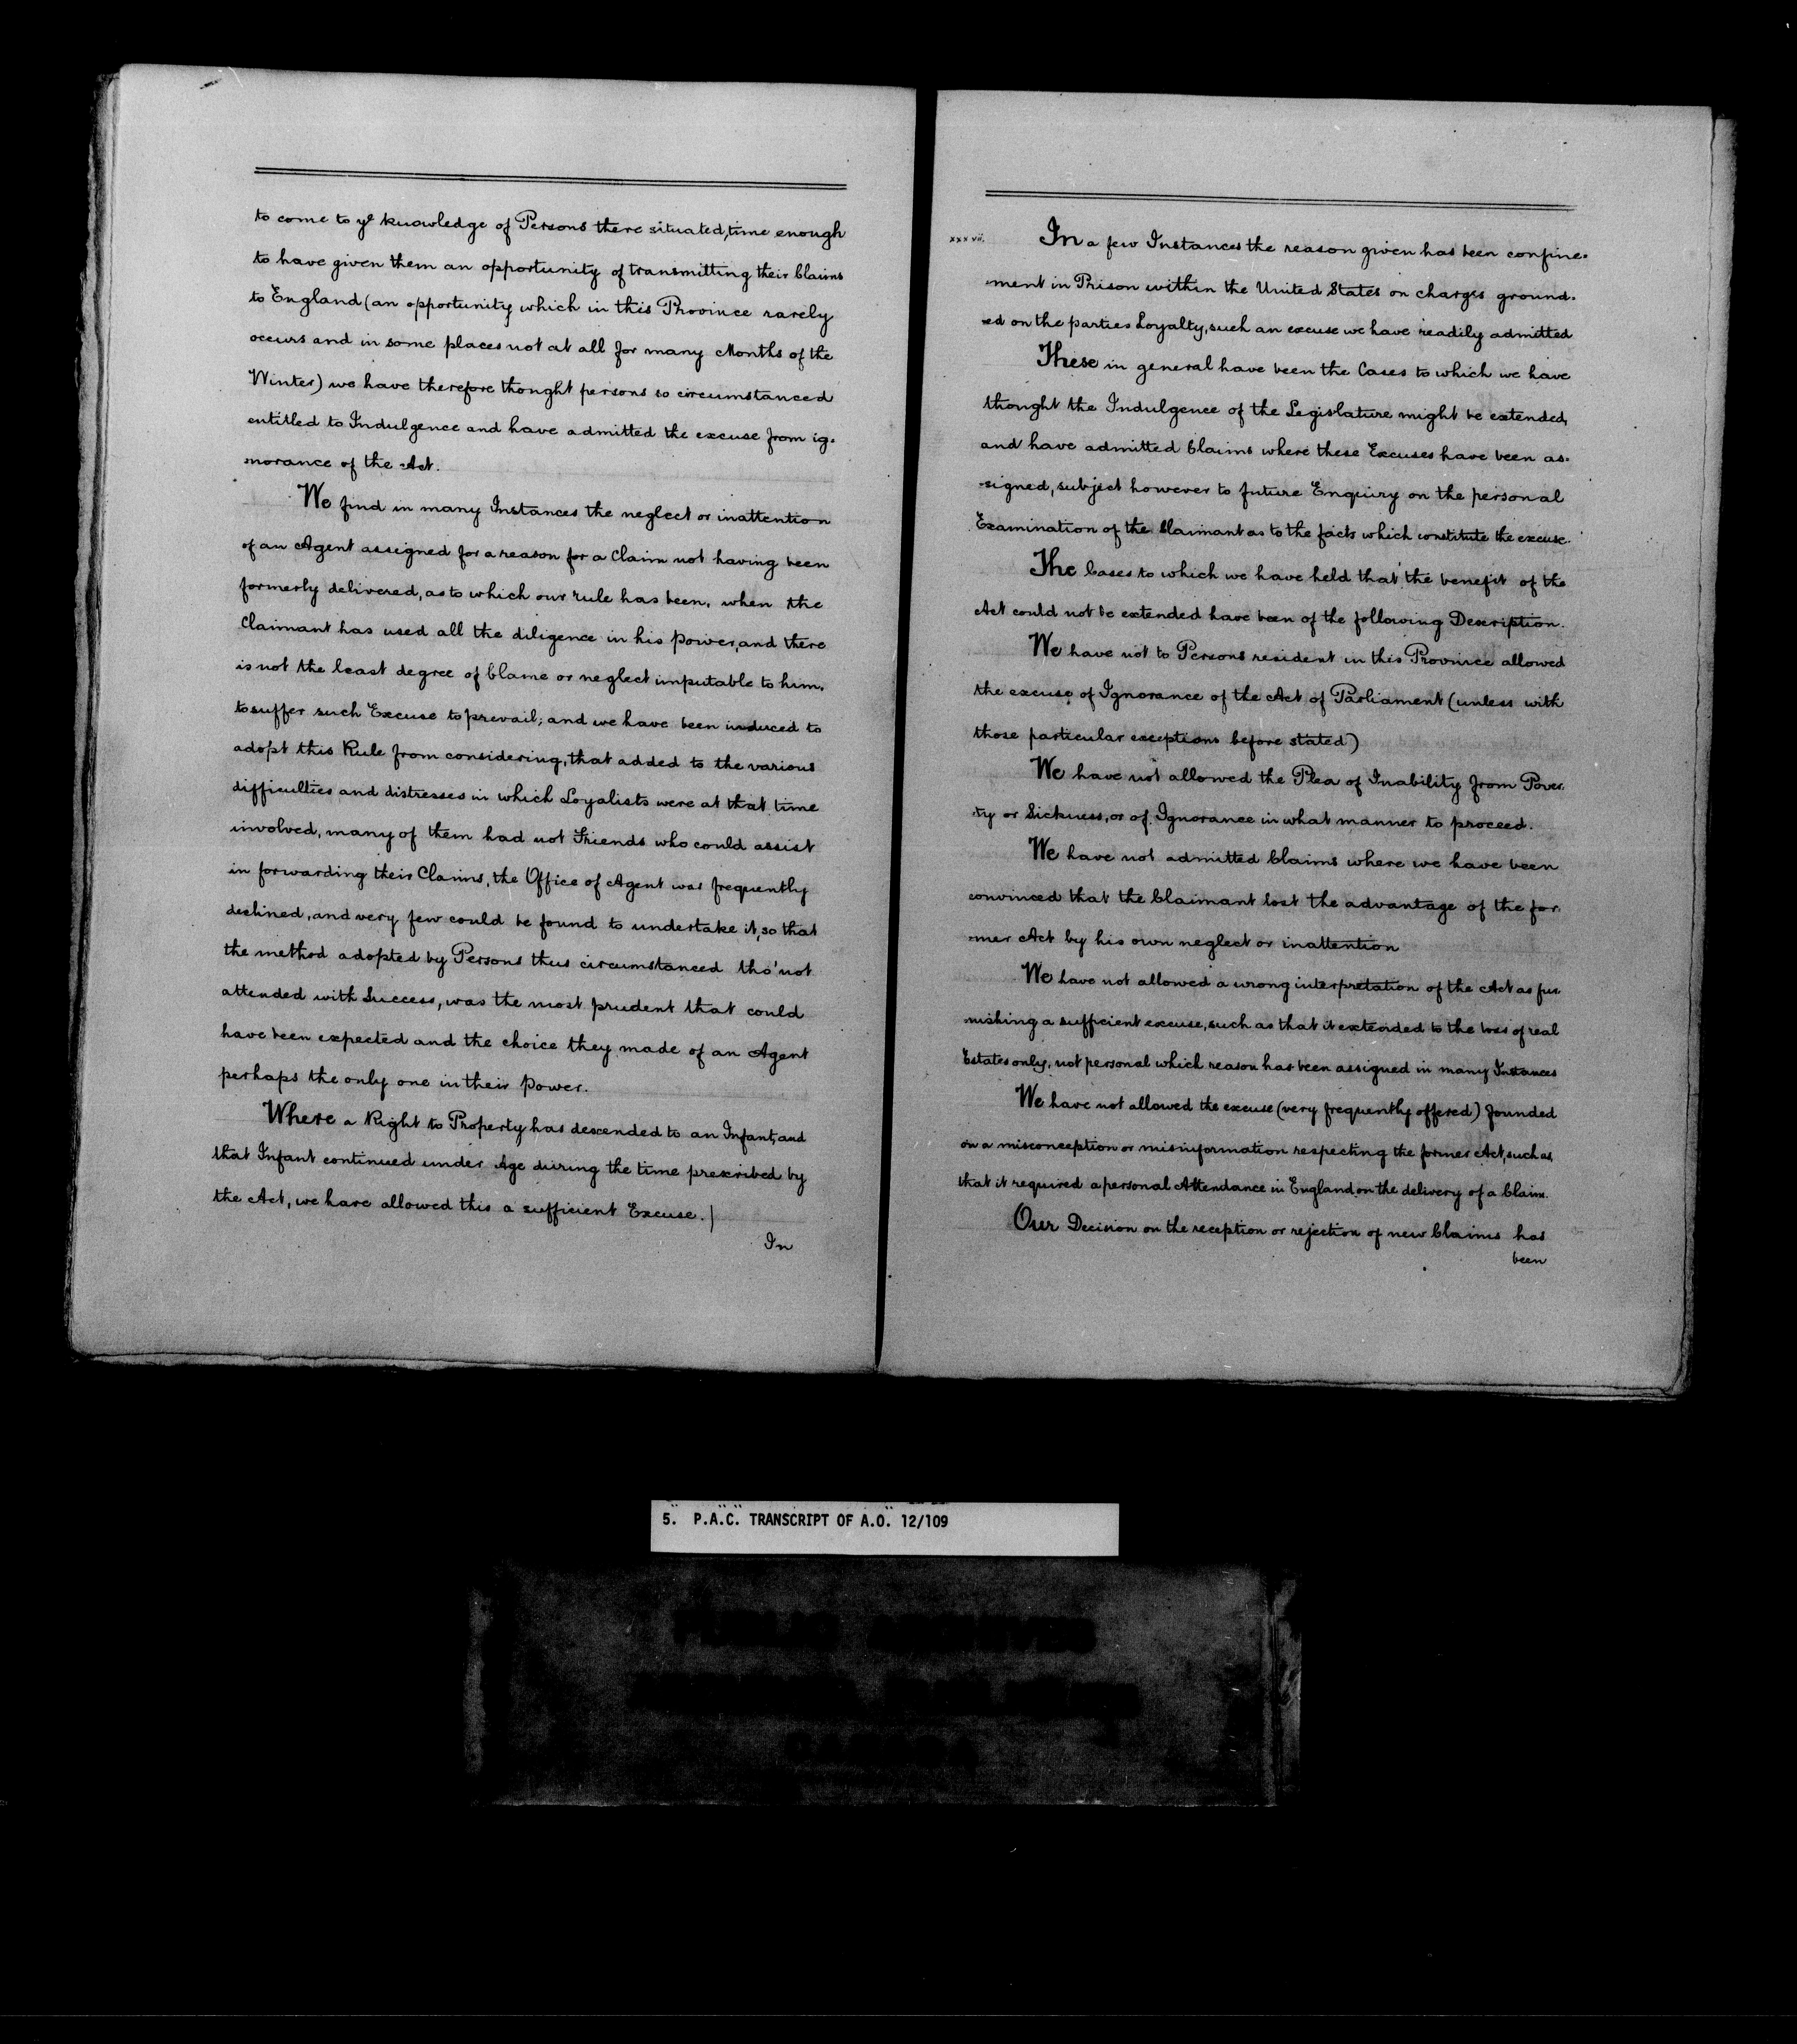 to come to ye knowledge of Persons there situated, time enough
to have given them an opportunity of transmitting their Claims
to England (an opportunity which in this Province rarely
occurs and in some places not at all for many Months of the
Winter) we have therefore thought persons so circumstanced
entitled to Indulgence and have admitted the excuse from ig-
norance of the Act.
We find in many Instances the neglect or inattention
of an Agent assigned for a reason for a Claim not having been
formerly delivered, as to which our rule has been, when the
Claimant has used all the diligence in his power, and there
is not the least degree of blame or neglect imputable to him,
to suffer such Excuse to prevail; and we have been induced to
adopt this Rule from considering, that added to the various
difficulties and distresses in which Loyalists were at that time
involved, many of them had not Friends who could assist
in forwarding their Claims, the Office of Agent was frequently
declined, and very few could be found to undertake it, so that
the method adopted by Persons thus circumstanced tho' not
attended with Success, was the most prudent that could
have been expected and the choice they made of an Agent
perhaps the only one in their Power.
Where a Right to Property has descended to an Infant, and
that Infant continued under Age during the time prescribed by
the Act, we have allowed this a sufficient Excuse.|
In
xxxvii.
In a few Instances the reason given has been confine-
-ment in Prison within the United States on charges ground-
-ed on the parties Loyalty, such an excuse we have readily admitted
These in general have been the Cases to which we have
thought the Indulgence of the Legislature might be extended,
and have admitted Claims where these Excuses have been as-
-signed, subject however to future Enquiry on the personal
Examination of the Claimant as to the facts which constitute the excuse.
The Cases to which we have held that the benefit of the
Act could not be extended have been of the following Description.
We have not to Persons resident in this Province allowed
the excuse of Ignorance of the Act of Parliament (unless with
those particular exceptions before stated)
We have not allowed the Plea of Inability from Pover-
-ty or Sickness, or of Ignorance in what manner to proceed.
We have not admitted Claims where we have been
convinced that the Claimant lost the advantage of the for-
-mer Act by his own neglect or inattention
We have not allowed a wrong interpretation of the Act as fur-
-nishing a sufficient excuse, such as that it extended to the loss of real
Estates only, not personal which reason has been assigned in many Instances
We have not allowed the excuse (very frequently offered) founded
on a misconception or misinformation respecting the former Act, such as,
that it required a personal Attendance in England on the delivery of a Claim.
Our Decision on the reception or rejection of new Claims has
been
5. P.A.C. TRANSCRIPT OF A.O. 12/109